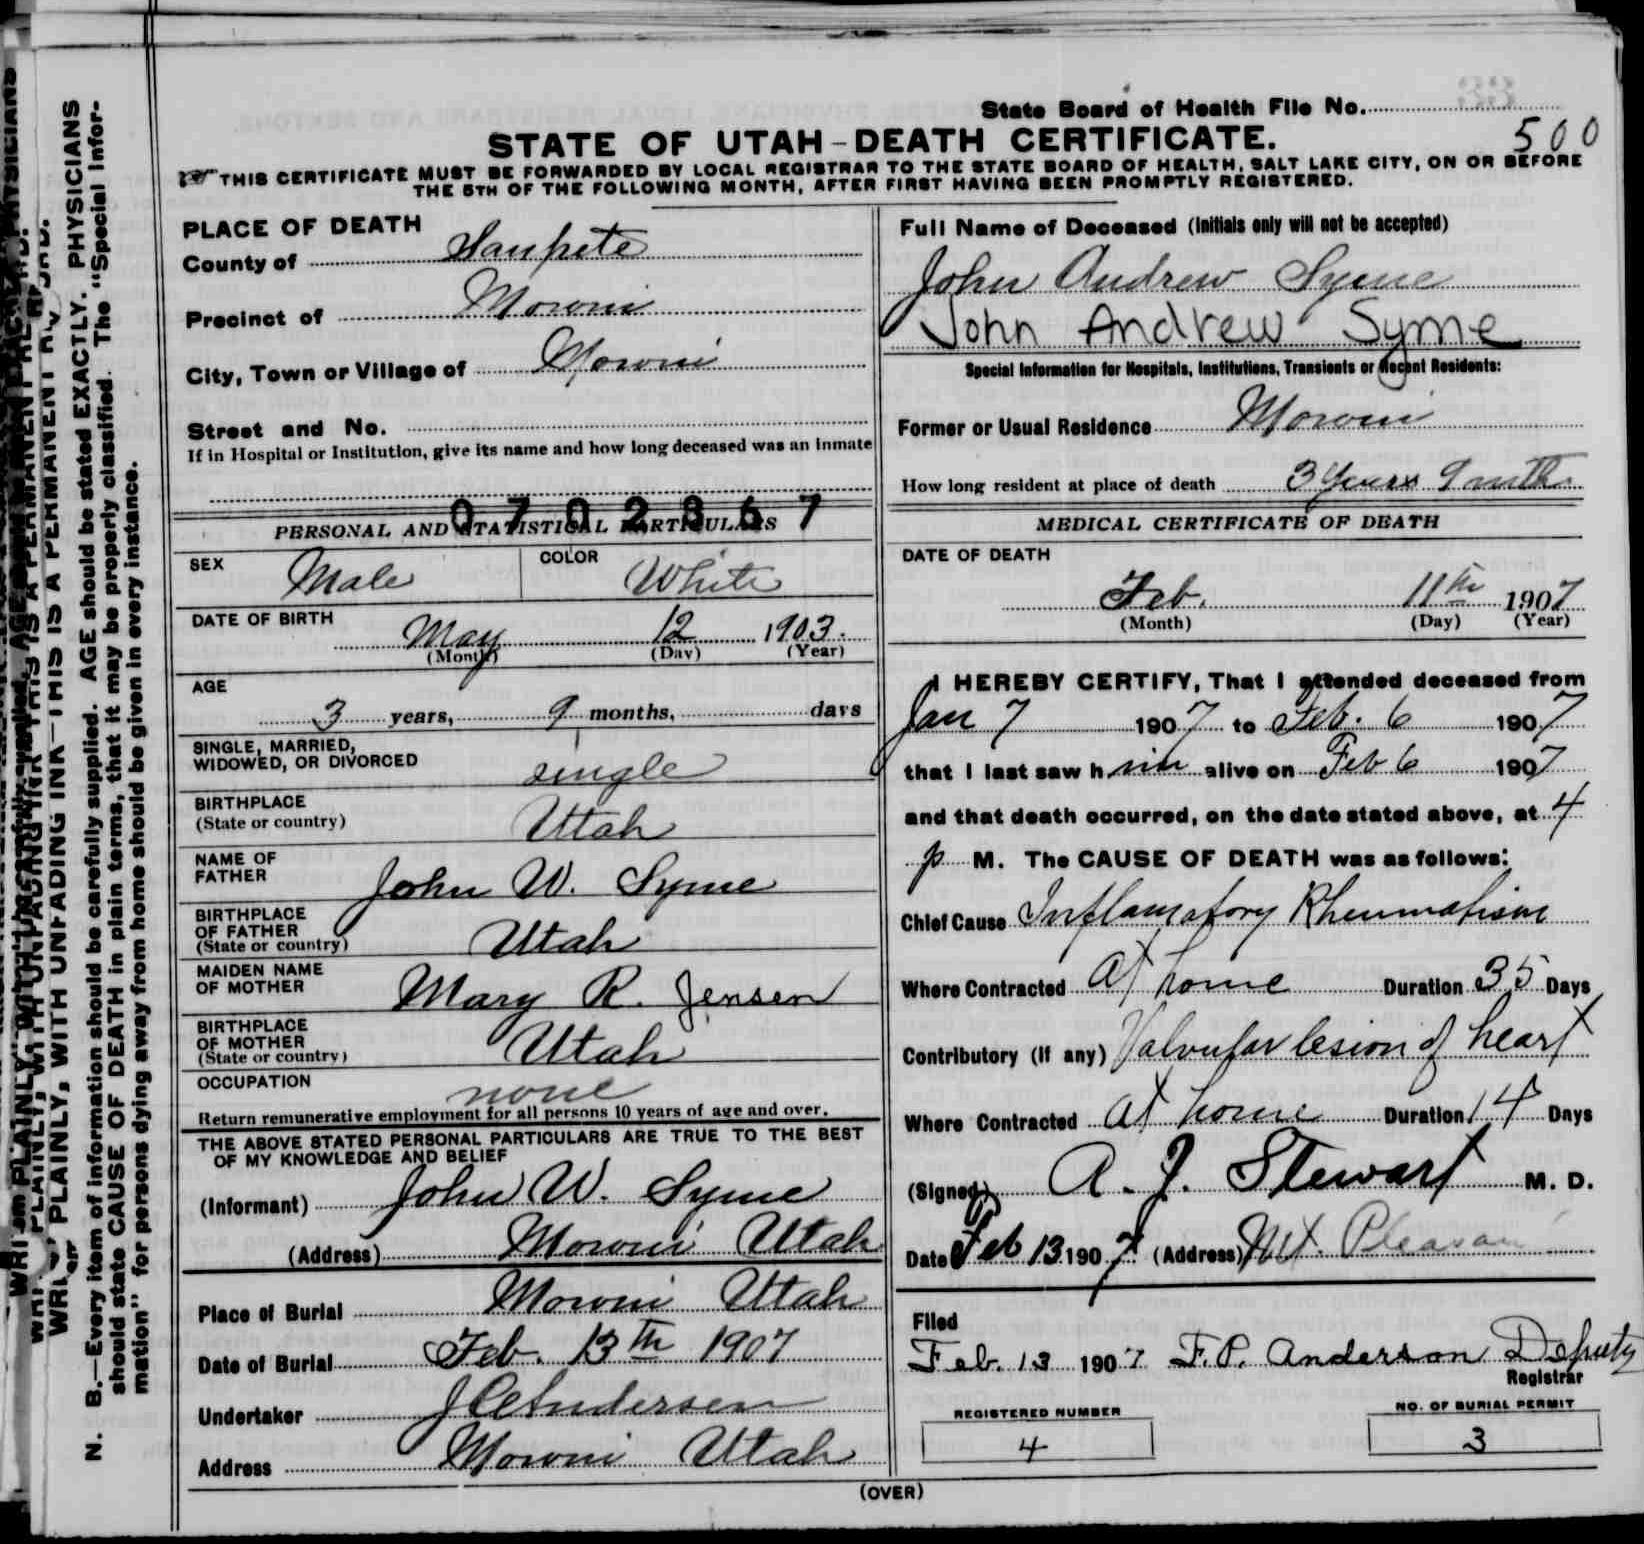 State Board of Health File No.
500
STATE OF UTAH-DEATH CERTIFICATE.
THIS CERTIFICATE MUST BE FORWARDED BY LOCAL REGISTRAR TO THE STATE BOARD OF HEALTH, SALT LAKE CITY, ON OR BEFORE
THE 5TH OF THE FOLLOWING MONTH, AFTER FIRST HAVING BEEN PROMPTLY REGISTERED.
PLACE OF DEATH
County of Sanpete
Precinct of Moroni
City, Town or Village of Moroni
Street and No.
If in Hospital or Institution, give its name and how long deceased was an inmate
0702367
PERSONAL AND STATISTICAL PARTICULARS
SEX Male COLOR White
DATE OF BIRTH
May 12 1903.
(Month) (Day) (Year)
AGE
3 years, 9 months, days
SINGLE, MARRIED,
WIDOWED, OR DIVORCED single
BIRTHPLACE
(State or country) Utah
NAME OF
FATHER John W. Syme
BIRTHPLACE
OF FATHER
(State or country) Utah
MAIDEN NAME
OF MOTHER Mary R. Jensen
BIRTHPLACE
OF MOTHER
(State or country) Utah
OCCUPATION none
Return remunerative employment for all persons 10 years of age and over.
THE ABOVE STATED PERSONAL PARTICULARS ARE TRUE TO THE BEST
OF MY KNOWLEDGE AND BELIEF
(Informant) John W. Syme
(Address) Moroni Utah
Place of Burial Moroni Utah
Date of Burial Feb. 13th 1907
Undertaker J C Andersen
Address Moroni Utah
Full Name of Deceased (Initials only will not be accepted)
John Andrew Syme
John Andrew Syme
Special Information for Hospitals, Institutions, Transients or Recent Residents:
Former or Usual Residence Moroni
How long resident at place of death 3 years 9 mths
MEDICAL CERTIFICATE OF DEATH
DATE OF DEATH
Feb. 11th 1907
(Month) (Day) (Year)
I HEREBY CERTIFY, That I attended deceased from
Jan 7 1907 to Feb. 6 1907
that I last saw him alive on Feb 6 1907
and that death occurred, on the date stated above, at 4
p M. The CAUSE OF DEATH was as follows:
Chief Cause Inflamatory Rheumatism
Where Contracted At home Duration 35 Days
Contributory (if any) Valvular lesion of heart
Where Contracted at home Duration 14 Days
(Signed) A. J. Stewart M. D.
Date Feb 13 1907 (Address) Mt. Pleasan
Filed
Feb. 13 1907 F. P. Anderson Deputy
Registrar
REGISTERED NUMBER
4
NO. OF BURIAL PERMIT
3
(OVER)
WRITE PLAINLY, WITH UNFADING INK—THIS IS A PERMANENT RECORD.
N. B.—Every item of information should be carefully supplied. AGE should be stated EXACTLY. PHYSICIANS
should state CAUSE OF DEATH in plain terms, that it may be properly classified. The "Special Infor-
mation" for persons dying away from home should be given in every instance.